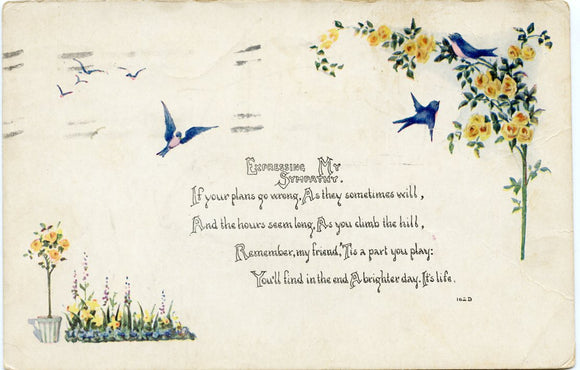 Expressing My
Sympathy.
If your plans go wrong, As they sometimes will,
And the hours seem long, As you climb the hill,
Remember, my friend, 'Tis a part you play:
You'll find in the end A brighter day. It's life.
162D